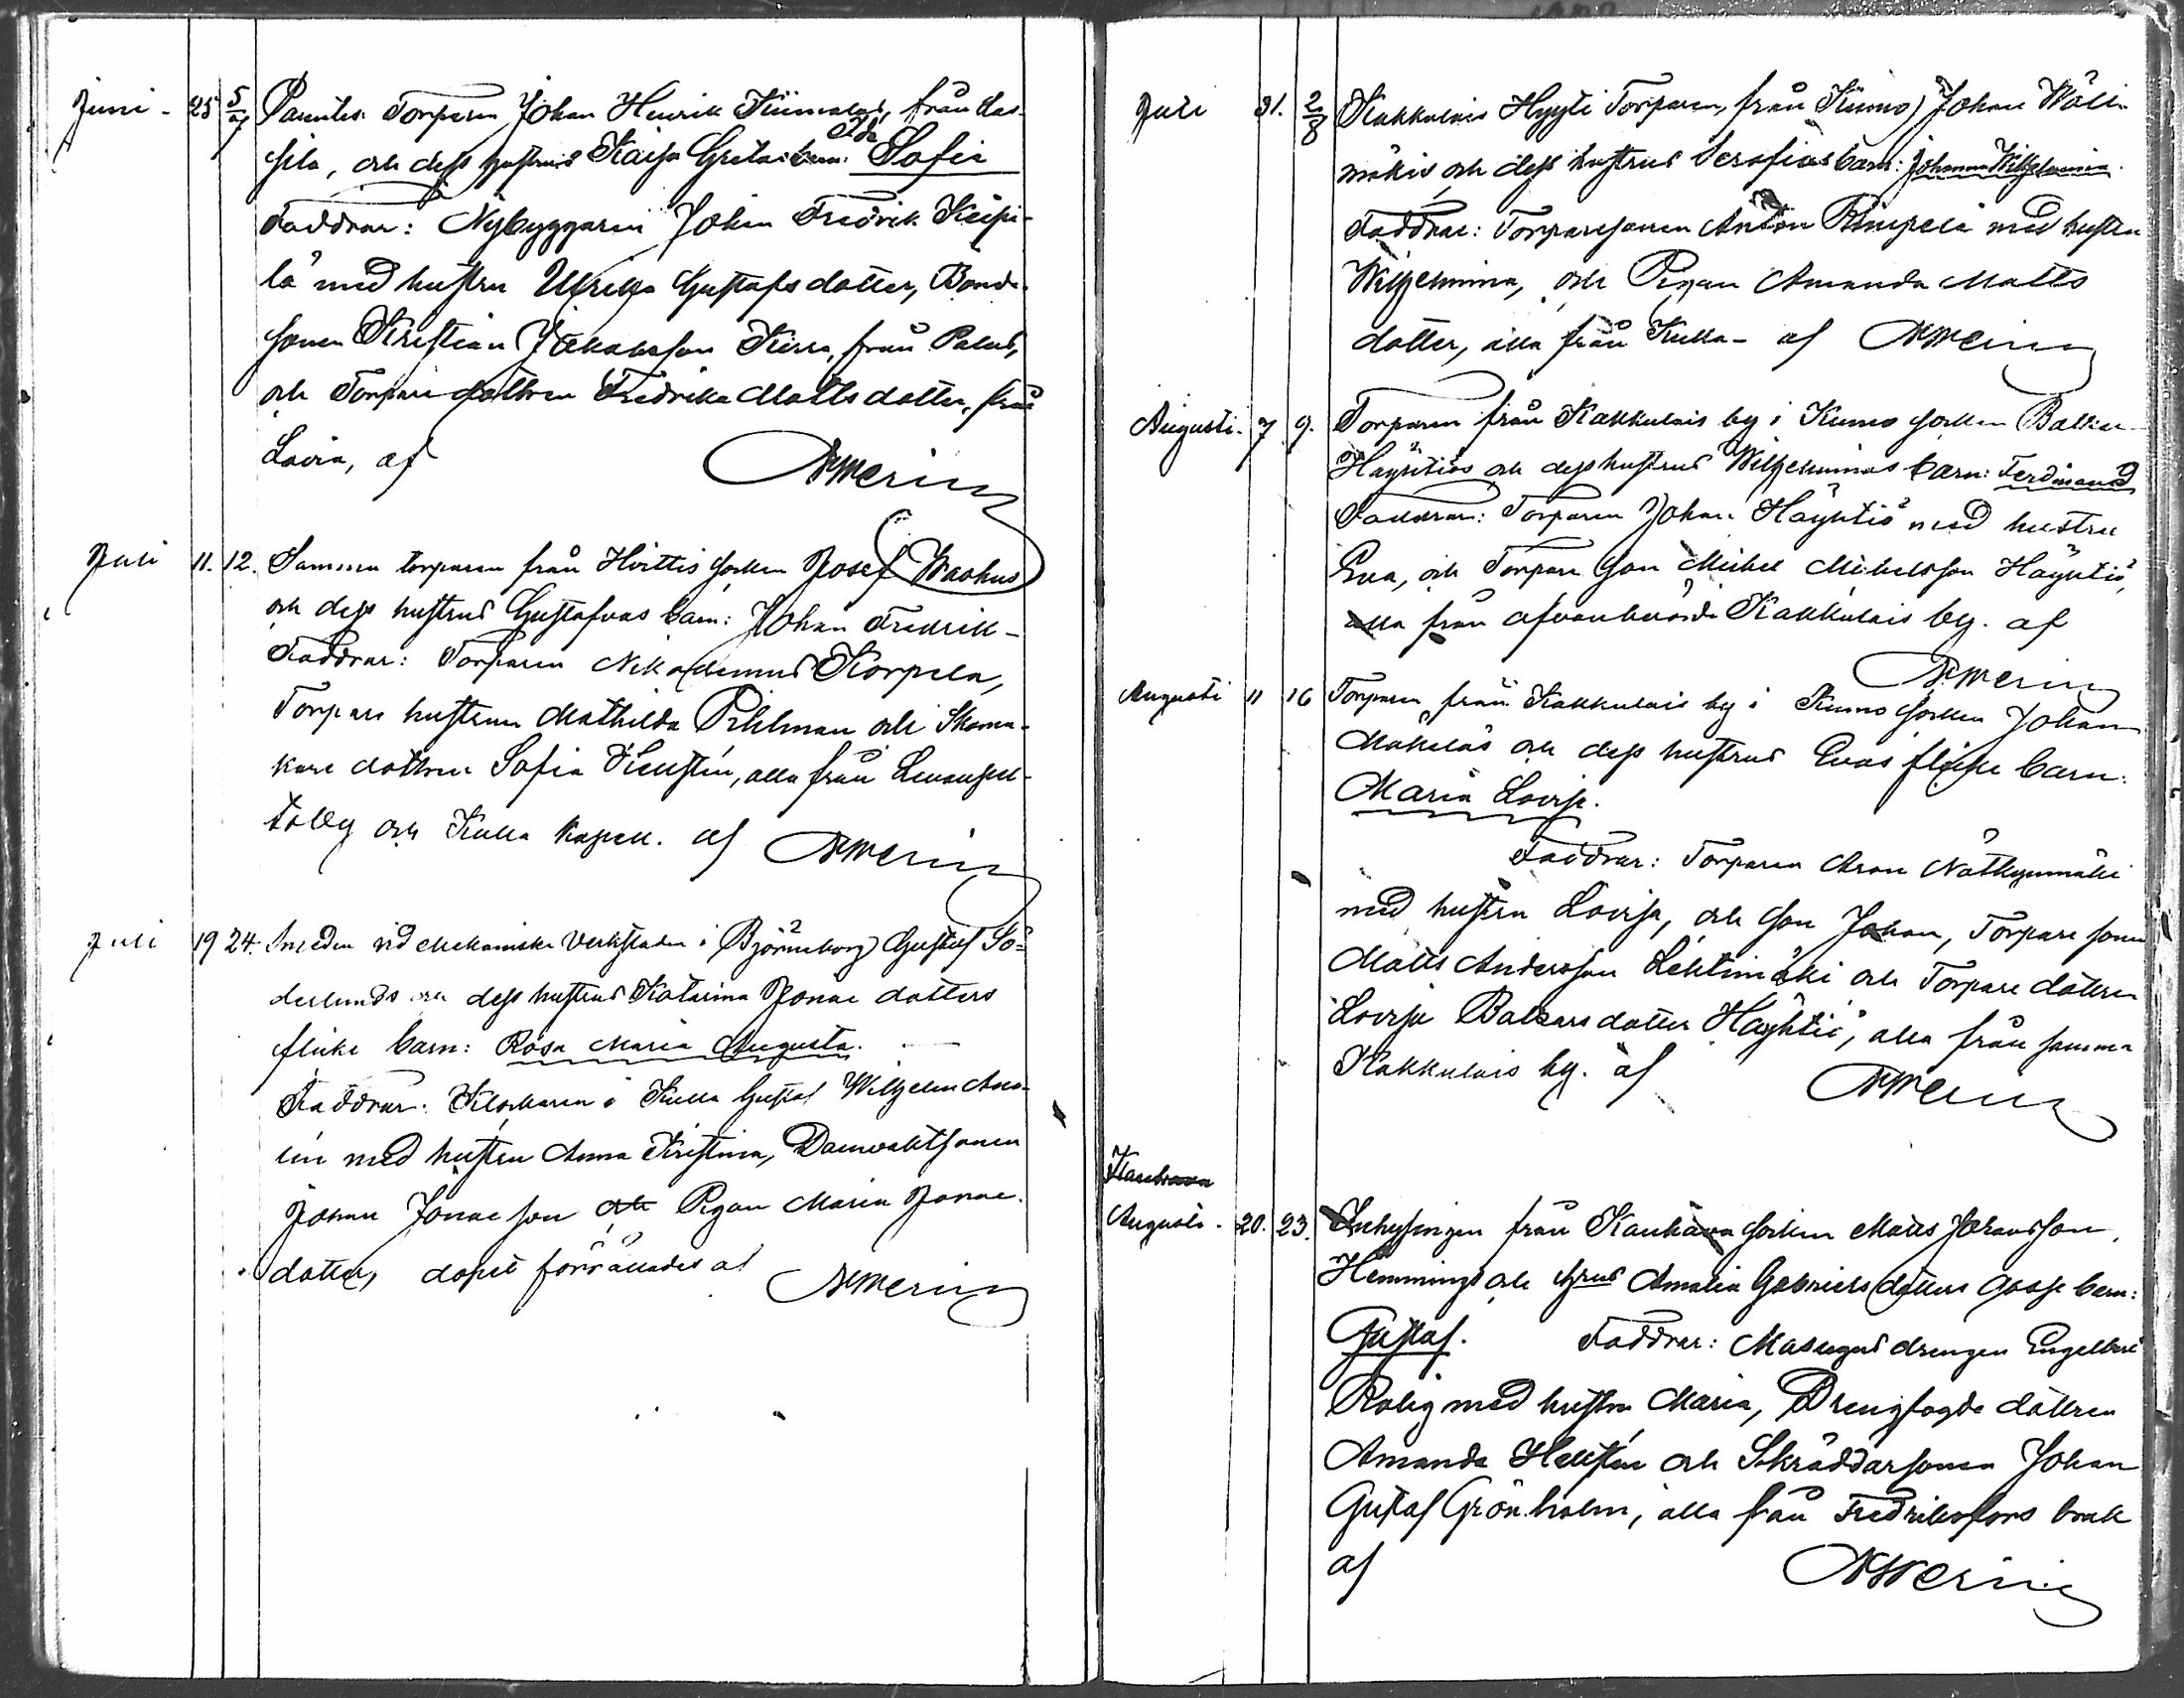 Juni - 25 5/7 Parentes: Torparen Johan Henrik Kiimalas, från Las-
sila, och dess hustrus Kaisa Gretas barn: Ida Sofia
Faddrar: Nybyggaren Johan Fredrik Keipi-
lä med hustru Ulrika Gustafsdotter, Bonde-
sonen Kristian Jakobsson Kirra, från Palus,
och Torparedottren Fredrika Mattsdotter, från
Lavia, af AWMerin
Juli 11. 12. Samma torparen från Hvittis socken Josef Waahus
och dess hustrus Gustafvas barn: Johan Fredrik -
Faddrar: Torparen Nikodemus Korpela,
Torpare hustrun Mathilda Pihlman och Skoma-
kare dottren Sofia Hellstén, alla från
och Kulla Kapell. af AWMerin
Juli 19 24. Smeden vid Mekaniska Verkstaden i Björneborg Gustaf Sö-
derlunds och dess hustrus Katarina Jonae dotters
flicke barn: Rosa Maria Augusta.
Faddrar: Klockaren i Kulla Gustaf Wilhelm
med hustru Anna Kristina, Damvaktsonen
Johan Jonaeson och Pigan Maria Jonae-
dotter, dopet förrättades af AWMerin
Juli 31. 2/8 Kakkulais Hyyti Torparen, från Kiumo) Johan Wäli-
mäkis och dess hustrus Serafias barn: Johanna Wilhelmina.
Faddrar: Torparesonen Anton Rimpelä med hustru
Wilhelmina, och Pigan Amanda Matts
dotter, alla från Kulla - af AWMerin
Augusti. 7 9. Torparen från Kakkulais by i Kumo socken Balkar
Häyhtiös och dess hustrus Wilhelminas barn: Ferdinand
Faddrar: Torparen Johan Häyhtiö med hustru
Eva, och Torpare son Mickel Mickelsson Häyhtiö,
alla från ofvanberörde Kakkulais by. af
AWMerin
Augusti 11 16 Torparen från Kakkulais by i Kumo socken Johan
Mäkeläs och dess hustrus Evas flicke barn:
Maria Lovisa.
Faddrar: Torparen Aron Nätkynmäki
med hustru Lovisa, och son Johan, Torpare sonen
Matts Andersson Lehtimäki och Torpare dottren
Lovisa Balkarsdotter Häyhtiö, alla från samma
Kakkulais by. af AWMerin
Kauhava
Augusti. 20. 23. Inhysingen från Kauhava socken Matts Johansson
Hemmings och hustrus Amalia Gabrielsdotters gosse barn:
Gustaf. Faddrar: Masugns drengen Engelbert
Rolig med hustru Maria, Drengfogde dottren
Amanda Hellstén och Skräddarsonen Johan
Gustaf Grönholm, alla från Fredriksfors bruk
af AWMerin